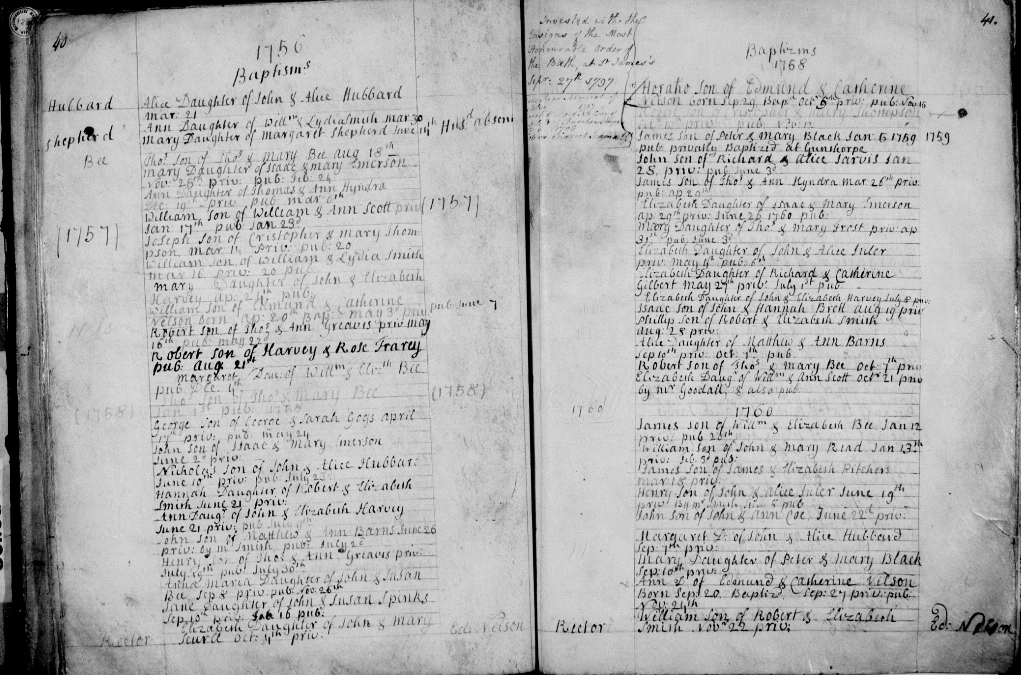 40
1756
Baptisms
Hubbard
Alice Daughter of John & Alice Hubbard
mar. 21
Ann Daughter of Willm & Lydia Smith mar 30
Shepherd
Mary Daughter of Margaret Shepherd June 14th Husd absent
Bee
Thos Son of Thos & Mary Bee Aug 18th
Mary Daughter of Isaac & Mary Emerson
Nov. 28th priv. pub. Feb. 24
Ann Daughter of Thomas & Ann Hyndra
Dec. 19th priv pub mar 6th
William Son of William & Ann Scott priv
(1757)
Jan 17th pub Jan 23d
(1757)
Joseph Son of Cristopher & Mary Thom
pson Mar 11 priv. pub. 20
William Son of William & Lydia Smith
mar 16 priv. 20 pub
Mary Daughter of John & Elizabeth
Harvey ap. 24th pub
William Son of Edmund & Catherine
Nelson born ap. 20 Bap. may 3d priv pub June 7
Robert Son of Thos & Ann Greaves priv may
16th pub. may 22d
Robert Son of Harvey & Rose Frarey
pub. Aug 21st
Margaret Dau. of Willm & Elizth Bee
pub. Dec. 4th
Thos Son of Thos & Mary Bee
(1758)
Jan 1st pub. 1758
(1758)
George Son of George & Sarah Gogs april
17th priv. pub. may 24
John Son of Isaac & Mary Emerson
June 2d priv.
Nicholas Son of John & Alice Hubbard
June 10th priv. pub. July 23
Hannah Daughter of Robert & Elizabeth
Smith June 21 priv.
Ann Daugr of John & Elizabeth Harvey
June 21 priv. pub July 9th
John Son of Matthew & Ann Barns June 26
priv. by mr Smith pub. July 26
Henry Son of Thos & Ann Greaves priv
July 4th pub. July 30th
Anna Maria Daughter of John & Susan
Bee Sep 8 priv. pub. Nov. 26th
Jane Daughter of John & Susan Spinks
Sep. 10th priv. 16 pub.
Elizabeth Daughter of John & Mary
Rector
Scurll oct. 4th priv.
Ed: Nelson
41.
Invested with the
Ensigns of the Most
Honourable Order of
the Bath, at St James's
Sepr. 27th 1797
Baptisms
1758
Horatio Son of Edmund & Catherine
Nelson born Sep 29. Bapd oct 9th priv. pub. Nov 15
Thompson
James Son of Peter & Mary Black Jan 6 1759
1759
pub. privatly Baptized at Gunthorpe
John Son of Richard & Alice Jarvis Jan
28. priv. pub June 3d
James Son of Thos & Ann Hyndra mar. 26th priv
pub ap 29th
Elizabeth Daughter of Isaac & Mary Emerson
ap. 29th priv. June 26 1760 pub.
Mary Daughter of Thos & Mary Frost priv. ap
31st pub. June 3d
Elizabeth Daughter of John & Alice Suler
priv. may 4th pub. 6th
Elizabeth Daughter of Richard & Catherine
Gilbert may 27th priv. July 1st pub.
Elizabeth Daughter of John & Elizabeth Harvey July 8 priv.
Isaac Son of John & Hannah Brett Aug 19 priv
Phillip Son of Robert & Elizabeth Smith
aug. 28 priv.
Alice Daughter of Matthew & Ann Barns
sep 10th priv. oct. 7th pub
Robert Son of Thos & Mary Bee oct 7th priv
Elizabeth Daugr of Willm & Ann Scott octr 21 priv
by mr Goodall, & also pub
1760
1760
James Son of Willm & Elizabeth Bee Jan 12
priv. pub 20th
William Son of John & Mary Read Jan 13th
priv. Feb 3d pub.
James Son of James & Elizabeth Pitchers
mar 18 priv.
Henry Son of John & Alice Suler June 19th
priv. By mr Smith pub
John Son of John & Ann Coe June 22d priv.
Margaret D. of John & Alice Hubbard
Sep. 7th priv.
Mary Daughter of Peter & Mary Black
Sep. 10th priv.
Ann D. of Edmund & Catherine Nelson
Born Sep. 20. Baptized Sep. 27 priv. pub.
Nov. 24th
William Son of Robert & Elizabeth
Rector
Smith Novr 22 priv.
Ed: Nelson